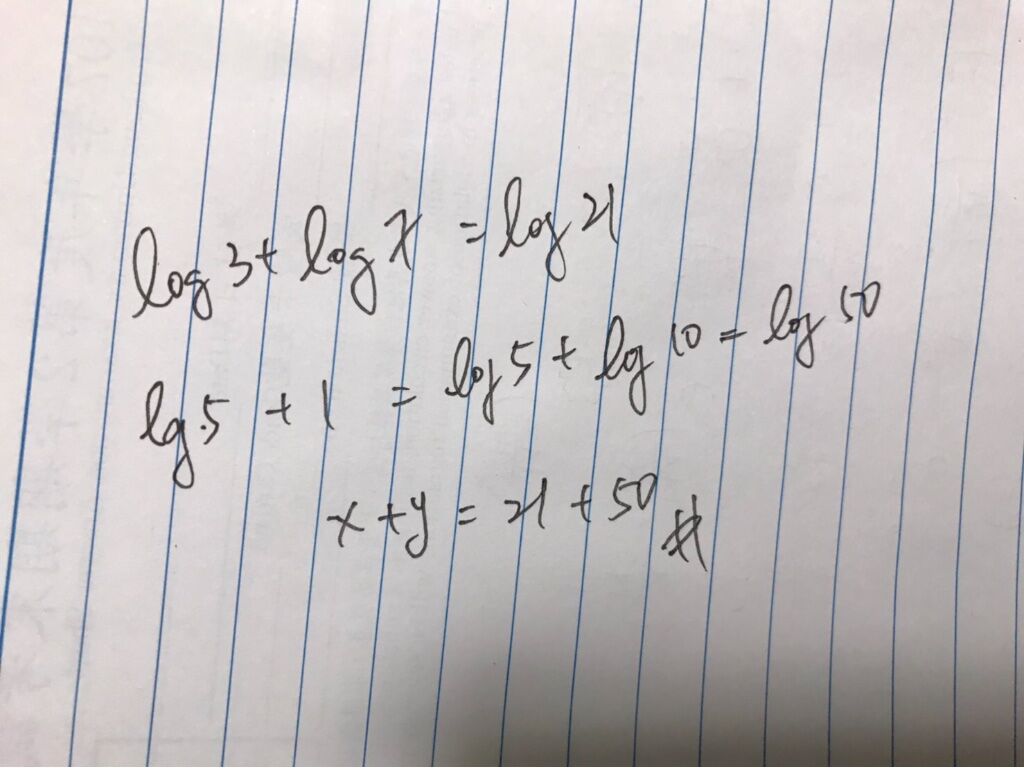 log 3 + log 7 = log 21
log 5 + 1 = log 5 + log 10 = log 50
x + y = 21 + 50 #